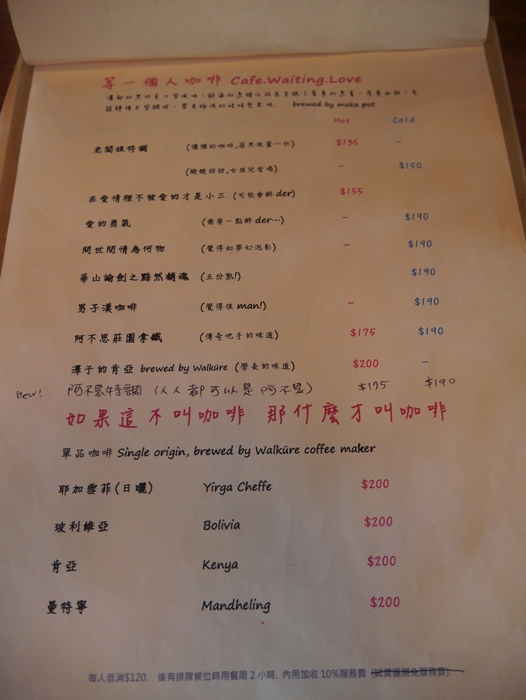 等一個人咖啡 Cafe.Waiting.Love
brewed by moka pot
Hot Cold
老闆娘特調 (慵懶的咖啡,每天限量一杯) $135 –
(酸酸甜甜,女孩兒會喝) – $150
在愛情裡不被愛的才是小三 (可能會醉 der) $155
愛的勇氣 (需要一點醉 der…) – $190
問世間情為何物 (覺得如夢幻泡影) – $190
華山論劍之黯然銷魂 (五份熱!) $190
男子漢咖啡 (覺得很 man!) – $190
阿不思莊園拿鐵 (傳奇吧手的味道) $175 $190
澤于的肯亞 brewed by Walküre (學長的味道) $200 –
new! 阿不思特調 (人人都可以是阿不思) $175 $190
如果這不叫咖啡 那什麼才叫咖啡
單品咖啡 Single origin, brewed by Walküre coffee maker
耶加雪菲(日曬) Yirga Cheffe $200
玻利維亞 Bolivia $200
肯亞 Kenya $200
曼特寧 Mandheling $200
每人低消$120. 後有排隊候位時用餐限 2 小時. 內用加收 10%服務費